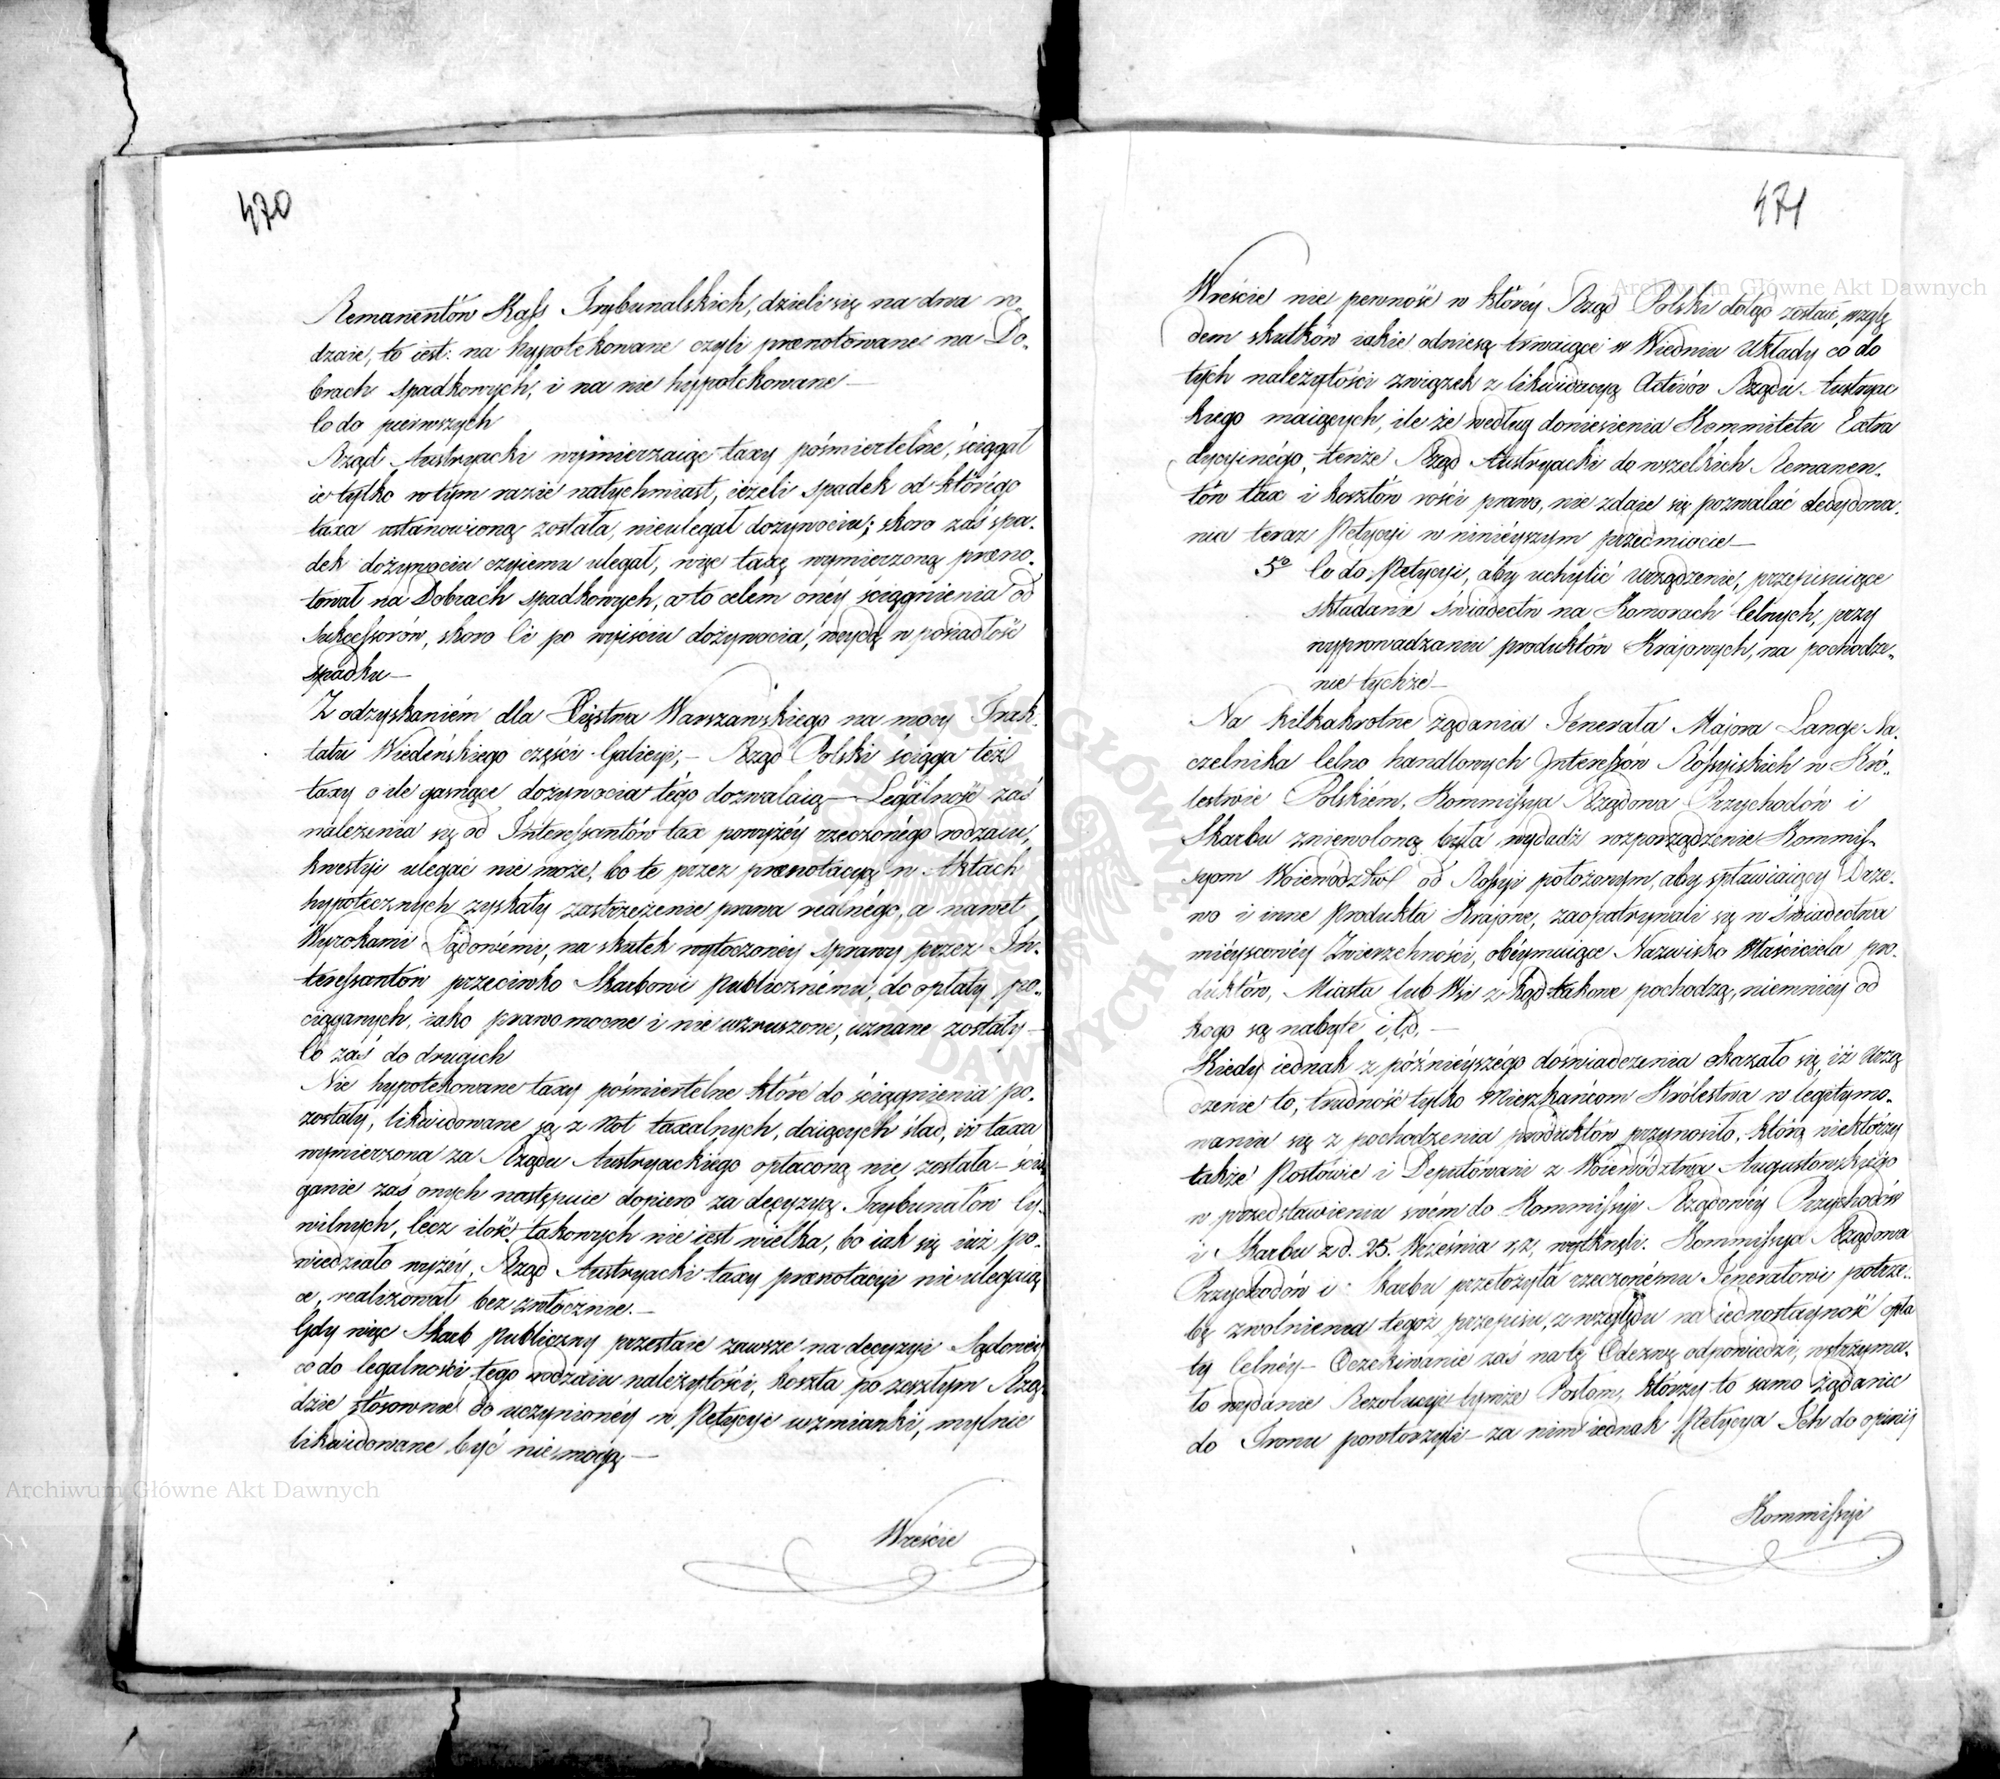 470
Remanentów Kass Trybunalskich, dzieli się na dwa ro-
dzaie, to iest: na hypotekowane czyli prænotowane na Do-
brach spadkowych, i na nie hypotekowane —
Co do pierwszych
Rząd Austryacki wymierzaiąc taxy pośmiertelne, ściągał
ie tylko w tym razie natychmiast, ieżeli spadek od którégo
taxa ustanowioną została, nieulegał dożywociu; skoro zaś spa-
dek dożywociu czyiemu ulegał, więc taxę wymierzoną præno-
tował na Dobrach spadkowych, a to celem onéy ściągnienia od
Sukcessorów, skoro ci po wyiściu dożywocia, weydą w posiadłość
spadku —
Z odzyskaniém dla Xięstwa Warszawskiego na mocy Trak-
tatu Wiedeńskiego części Galicyi, — Rząd Polski ściąga też
taxy o ile gasnące dożywocia tégo dozwalaią — Legalność zaś
należenia się od Interessantów tax powyżéy rzeczonégo rodzaiu,
kwestyi ulegać nie może, bo te przez prænotacyą w Aktach
hypotecznych zyskały zastrzeżenie prawa realnégo, a nawet
Wyrokami Sądowémi, na skutek wytoczonéy sprawy przez In-
teressantów przeciwko Skarbowi Publicznému, do opłaty po-
ciąganych, iako prawomocne i nie wzruszone, uznane zostały —
Co zaś do drugich
Nie hypotekowane taxy pośmiertelne które do ściągnienia po-
zostały, likwidowane są z Not taxalnych, daiących ślad, iż taxa
wymierzona za Rządu Austryackiégo opłaconą nie została — ścią
ganie zaś onych następuie dopiero za decyzyą Trybunałów Cy-
wilnych, lecz ilość takowych nie iest wielka, bo iak się iuż po-
wiedziało wyżéy, Rząd Austryacki taxy prænotacyi nie ulegaią
ce, realizował bez zwłocznie. —
Gdy więc Skarb Publiczny przestaie zawsze na decyzyi Sądowéy
co do legalności tego rodzaiu należytości, koszta po zeszłym Rzą-
dzie stosownie do uczynionéy w Petycyi wzmianki, mylnie
likwidowane być nie mogą —
Wreście
471
Wreście nie pewność w któréy Rząd Polski dotąd zostaie, wzglę
dem skutków iakie odniesą trwaiące w Wiedniu Układy co do
tych należytości związek z likwidacyą Activów Rządu Austryac
kiego maiących, ile że według doniesienia Kommitetu Extra
dycyinégo, tenże Rząd Austryacki do wszelkich Remanen-
tów tax i kosztów rości prawo, nie zdaie się pozwalać decydowa-
nia teraz Petycyi w ninieyszym przedmiocie —
5o Co do Petycyi, aby uchylić urządzenie, przepisuiące
składanie świadectw na Komorach Celnych, przy
wyprowadzaniu produktów Krajowych, na pochodze-
nie tychże —
Na kilkakrotne żądania Jenerała Majora Lange Na-
czelnika Celno handlowych Interessów Rossyiskich w Kró-
lestwie Polskiém, Kommissya Rządowa Przychodów i
Skarbu zniewoloną była wydadź rozporządzenie Kommis-
syom Woiewództw od Rossyi położonym, aby spławiaiący Drze-
wo i inne Produkta Krajowe, zaopatrywali się w Świadectwa
miéyscowéy Zwierzchności, obéymuiące Nazwisko Właściciela pro-
duktów, Miasta lub Wsi z kąd takowe pochodzą, niemniéy od
kogo są nabyte i t.d. —
Kiedy iednak z późniéyszégo doświadczenia okazało się, iż urzą
dzenie to, trudność tylko Mieszkańcom Królestwa w legitymo-
waniu się z pochodzenia produktów przynosiło, którą niektórzy
także Posłowie i Deputowani z Woiewództwa Augustowskiégo
w przedstawieniu swém do Kommissyi Rządowéy Przychodów
i Skarbu z d. 25. Września r, z, wytknęli. Kommissya Rządowa
Przychodów i Skarbu przełożyła rzeczonému Jenerałowi potrze-
bę zwolnienia tegoż przepisu, z względu na iednostayność opła
ty Celnéy — Oczekiwanie zaś na tę Odezwę odpowiedzi, wstrzyma-
ło wydanie Rezolucyi tymże Posłom, którzy to samo żądanie
do Tronu powtorzyli — za nim iednak Petycya Ich do opinij
Kommissyi
Archiwum Główne Akt Dawnych
Archiwum Główne Akt Dawnych